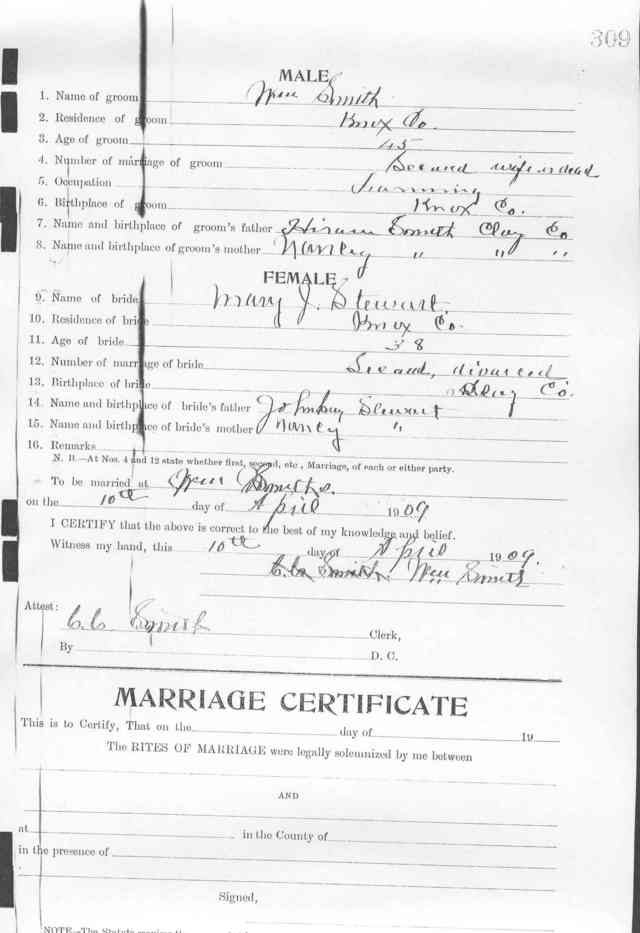 309
MALE
1. Name of groom Wm Smith
2. Residence of groom Knox Co.
3. Age of groom 45
4. Number of marriage of groom Second wife is dead
5. Occupation Farming
6. Birthplace of groom Knox Co.
7. Name and birthplace of groom's father Hiram Smith Clay Co
8. Name and birthplace of groom's mother Nancy " " "
FEMALE
9. Name of bride Mary J. Stewart.
10. Residence of bride Knox Co.
11. Age of bride 38
12. Number of marriage of bride Second, divorced
13. Birthplace of bride Clay Co.
14. Name and birthplace of bride's father Stewart
15. Name and birthplace of bride's mother Nancy "
16. Remarks
N. B.—At Nos. 4 and 12 state whether first, second, etc., Marriage, of each or either party.
To be married at Wm Smiths.
on the 10th day of April 1909
I CERTIFY that the above is correct to the best of my knowledge and belief.
Witness my hand, this 10th day of April 1909.
Wm Smith
Attest:
C.C. Smith Clerk,
By D. C.
MARRIAGE CERTIFICATE
This is to Certify, That on the day of 19
The RITES OF MARRIAGE were legally solemnized by me between
AND
at in the County of
in the presence of
Signed,
NOTE—The Statute requires the